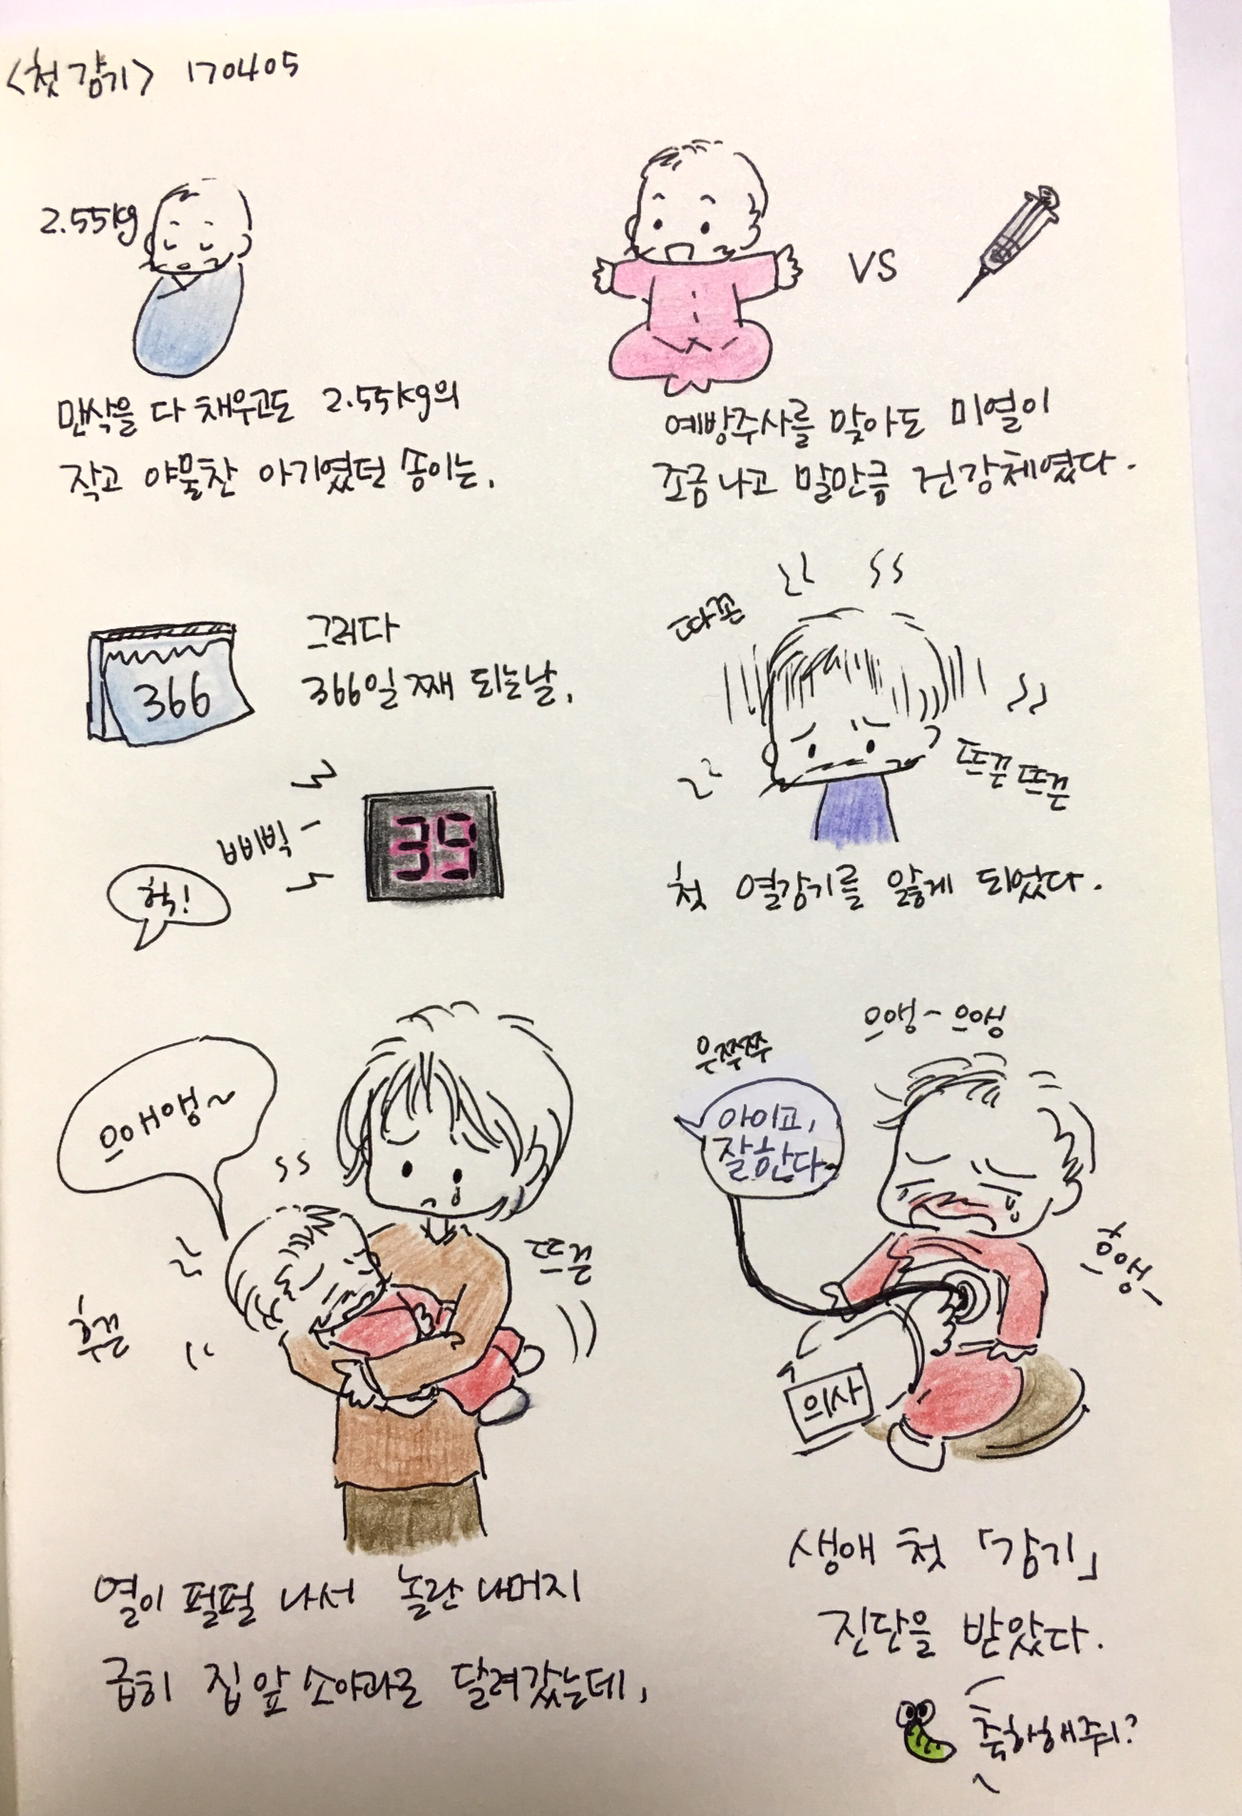 <첫 감기> 170405
2.55kg
만삭을 다 채우고도 2.55kg의
작고 야물찬 아기였던 송이는,
VS
예방주사를 맞아도 미열이
조금 나고 말만큼 건강체였다.
366
그러다
366일 째 되는날,
삐비빅-
39
헉!
따끈
뜨끈뜨끈
첫 열감기를 앓게 되었다.
으애앵~
뜨끈
후끈
열이 펄펄 나서 놀란 나머지
급히 집 앞 소아과로 달려갔는데,
우쭈쭈
아이고,
잘한다
으앵~ 으앵
흐앵~
의사
생애 첫 「감기」
진단을 받았다.
축하해줘?